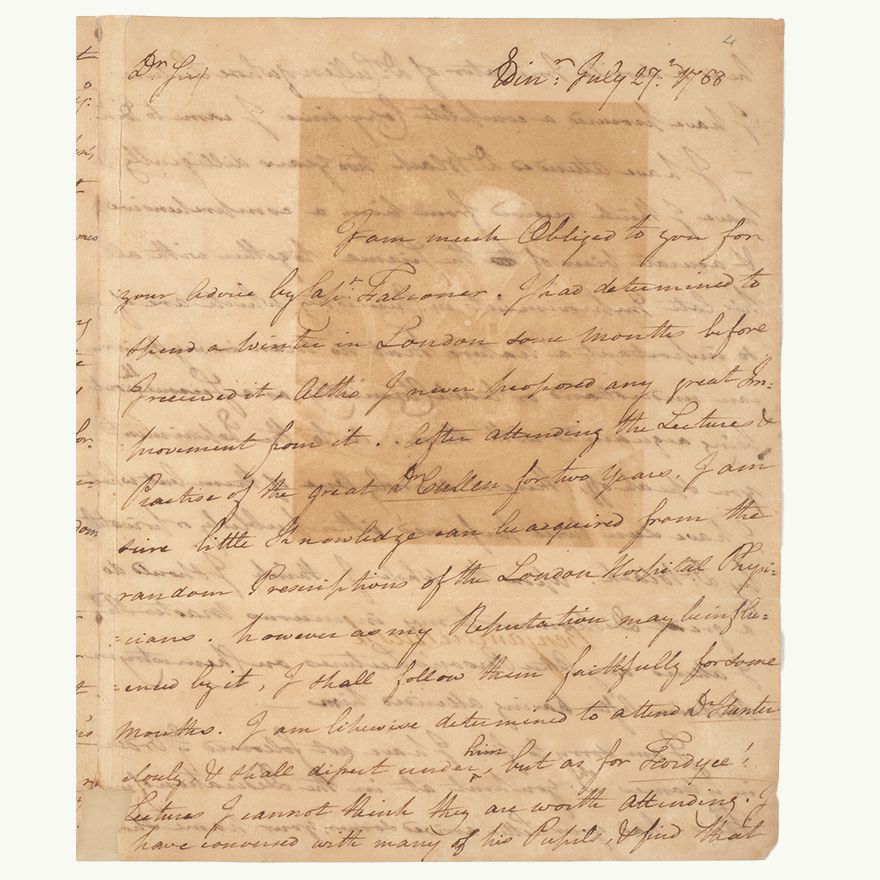 4
Dr Sir Edinr. July 27th. 1768
I am much Obliged to you for
your advice by Capt. Falconer. I had determined to
spend a winter in London some months before
I received it Altho I never proposed any great Im:
:provement from it.. After attending the Lectures &
Practise of the great Dr Cullen for two Years, I am
sure little Knowledge can be acquired from the
random Prescriptions of the London Hospital Physi:
:cians. however as my Reputation may be influ:
:enced by it, I shall follow them faithfully for some
months. I am likewise determined to attend Dr Hunter
closely & shall disect under him, but as for Fordyce's
Lectures I cannot think they are worth attending. I
have conversed with many of his Pupils, & find that